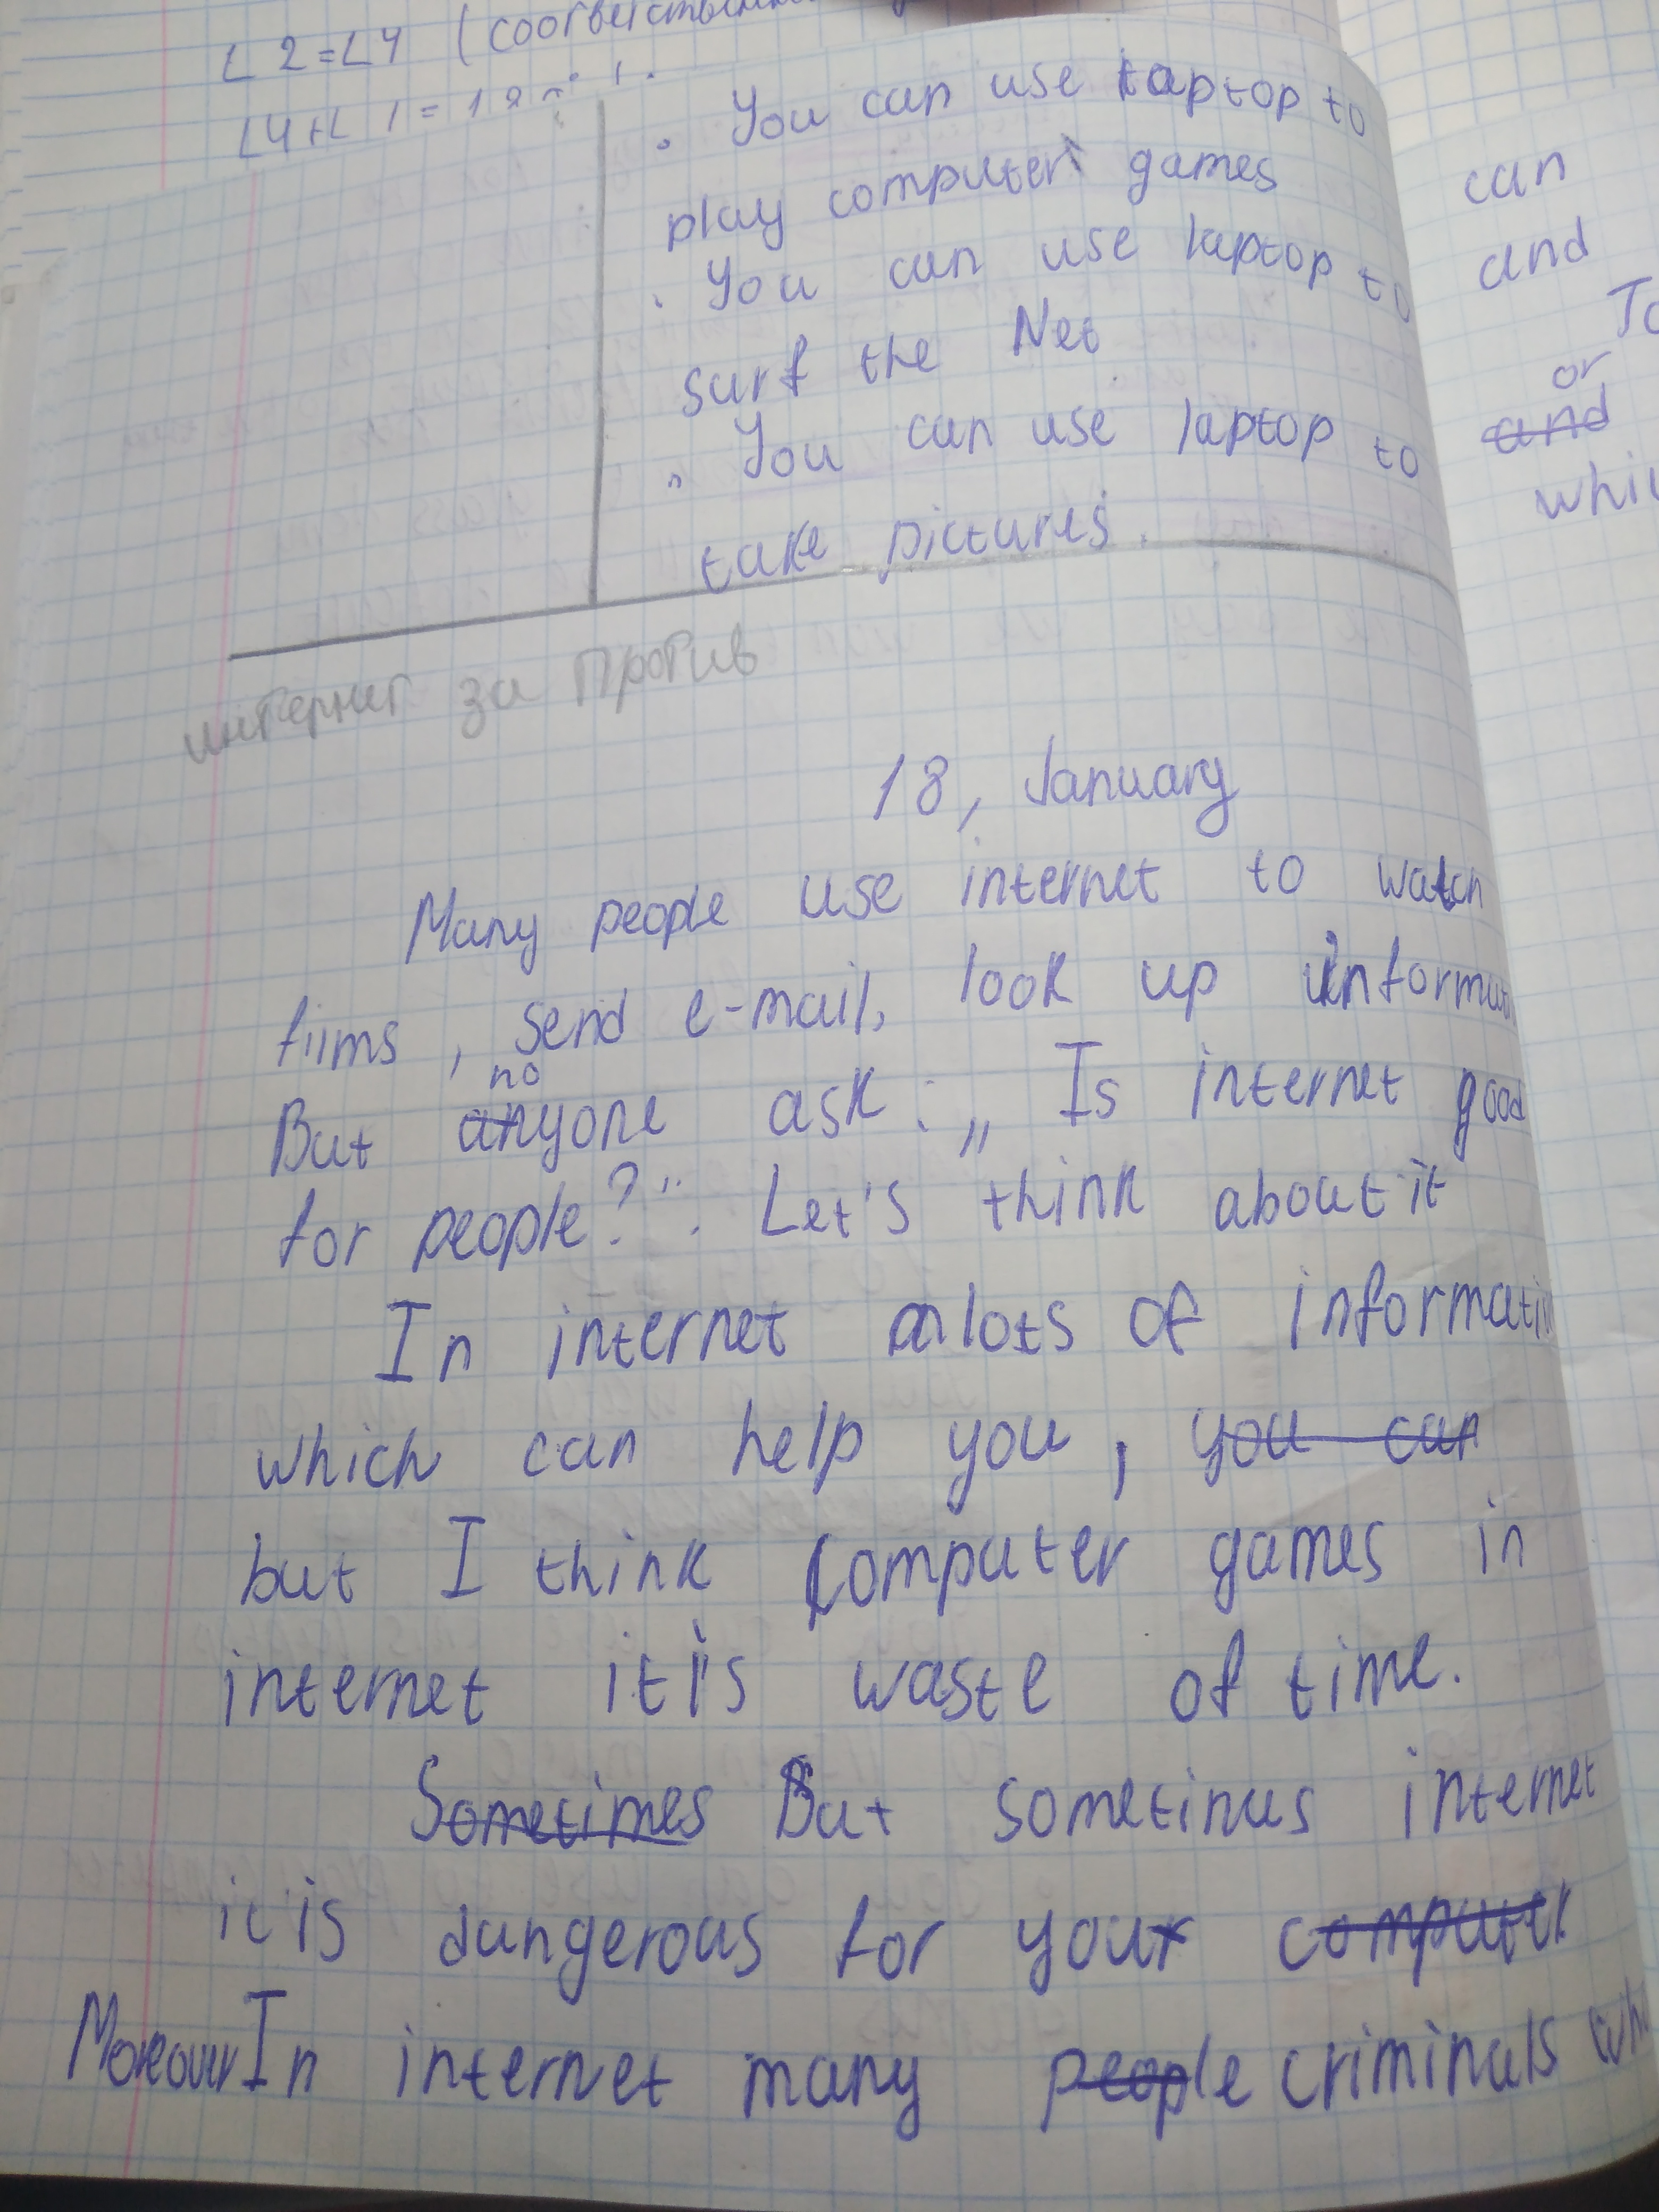 ∠2=∠4 (
∠4+∠1=18
. You can use laptop to
play computer games
. You can use laptop to
surf the Net
. You can use laptop to
take pictures.
интернет за против
18, January
Many people use internet to watch
films, send e-mail, look up informat
no
But anyone ask: „Is internet good
for people?". Let's think about it
In internet a lots of informati
which can help you, you can
but I think computer games in
internet it is waste of time.
Sometimes But sometimes internet
it is dangerous for your computer
Moreover In internet many people criminals wh
can
and
To
or
and
whi